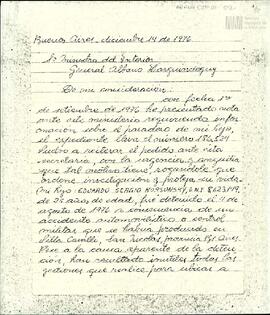 Buenos Aires, diciembre 14 de 1976
Sr Ministro del Interior
General Albano Harguindeguy
De mi consideración:
con fecha 1º
de setiembre de 1976 he presentado nota
ante ese ministerio requiriendo infor
mación sobre el paradero de mi hijo,
el expediente lleva el número
vuelvo a reiterar el pedido ante esta
secretaría, con la urgencia y angustia
que tal motivo tiene, rogándole que
ordene, investiguen y proteja su vida.
Mi hijo EDUARDO SERGIO KORSUNSKY, DNI
de 25 años de edad, fue detenido el 4 de
agosto de 1976 a consecuencia de un
accidente automovilístico o control
militar que se había producido en
Villa Adelina, San Isidro, provincia Bs. Aires.
Pese a la causa aparente de la deten
ción, han resultado inútiles todas las
gestiones que realicé para ubicar a